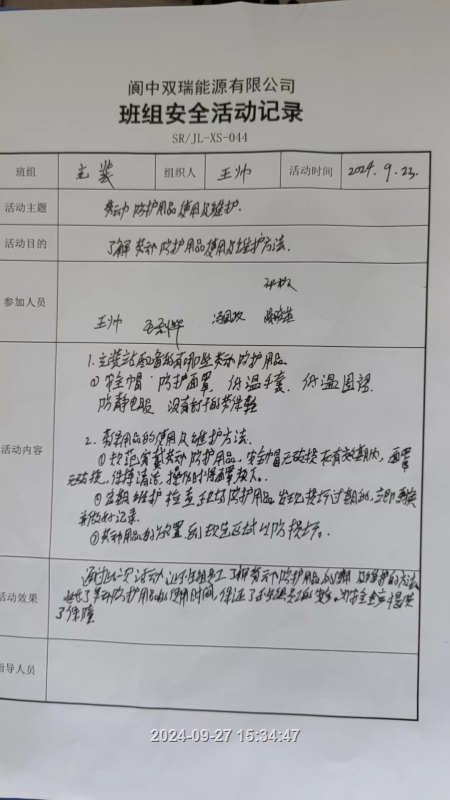 阆中双瑞能源有限公司
班组安全活动记录
SR/JL-XS-044
班组 充装 组织人 王帅 活动时间 2024.9.23.
活动主题 劳动防护用品使用及维护.
活动目的 了解劳动防护用品使用及维护方法.
参加人员
王帅
活动内容
1. 充装站配备的有哪些劳动防护用品
① 安全帽 防护面罩, 低温手套, 低温围裙
防静电服 没有钉子的劳保鞋
2. 劳保用品的使用及维护方法.
①规范穿戴劳动防护用品. 安全帽无破损在有效期内, 面罩
无破损, 保持清洁, 操作时将面罩放下.
②定期维护检查劳动防护用品发现损坏过期的, 立即更换
并做好记录.
③劳动用品的放置到规定区域以防损坏.
活动效果
通过此次活动让班组员工了解劳动防护用品的使用及维护的方法
延长了劳动防护用品的使用时间, 保证了班组员工的安全, 为安全生产提供
了保障
指导人员
2024-09-27 15:34:47